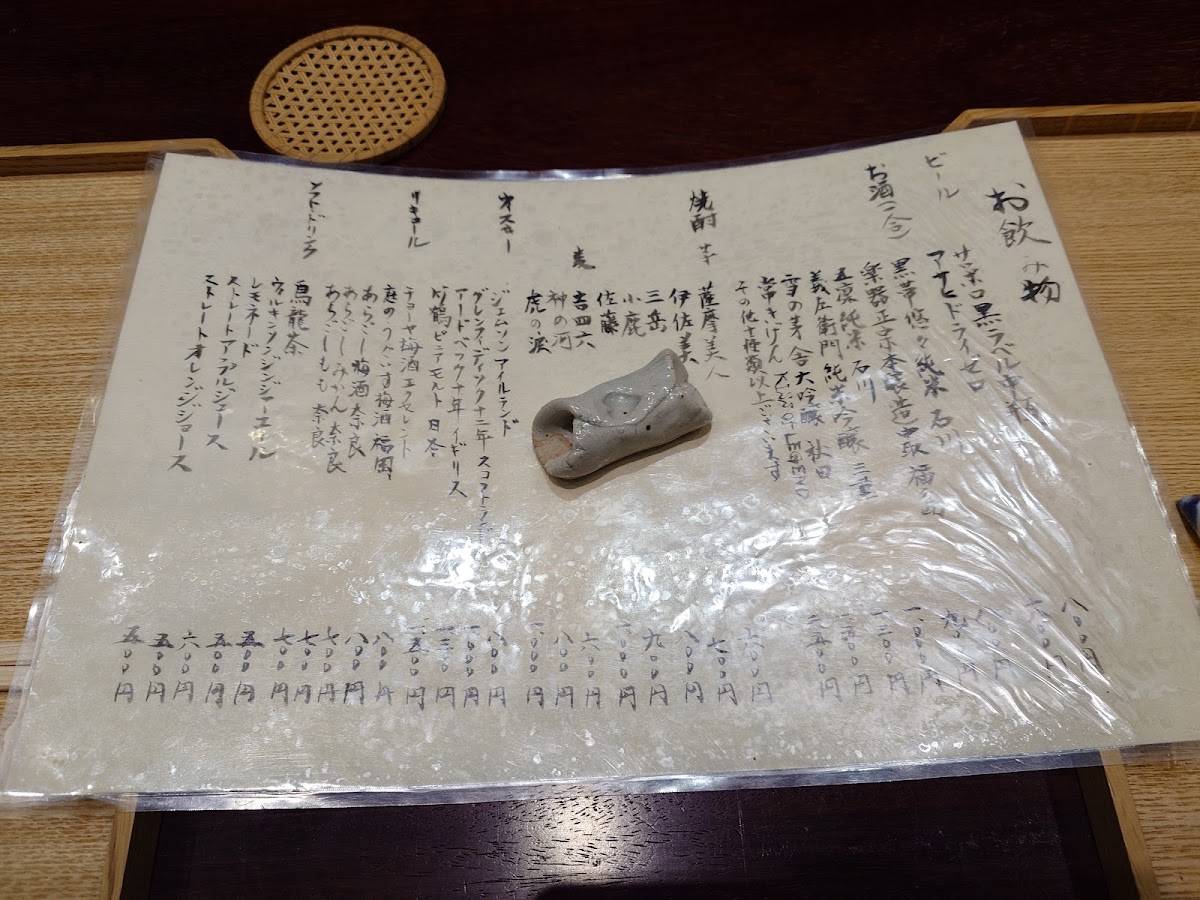 お飲み物
ビール
サッポロ黒ラベル中瓶
アサヒドライゼロ
お酒(一合)
黒帯悠々純米 石川
楽器正宗本醸造中取 福島
五凛純米 石川
義左衛門純米吟醸 三重
雪の茅舎大吟醸 秋田
常きげん
その他十種類以上ございます
焼酎 芋
薩摩美人
伊佐美
三岳
小鹿
佐藤
麦
吉四六
神の河
虎の涙
ジェムソン アイルランド
グレンフィディック十二年 スコットランド
アードベック十年 イギリス
竹鶴ピュアモルト 日本
リキュール
チョーヤ梅酒エクセレント
庭のうぐいす梅酒 福岡
あらごし梅酒 奈良
あらごしみかん 奈良
あらごしもも 奈良
ソフトドリンク
烏龍茶
ウィルキンソンジンジャーエール
レモネード
ストレートアップルジュース
ストレートオレンジジュース
八〇〇円
七〇〇円
八〇〇円
九〇〇円
一〇〇〇円
六〇〇円
八〇〇円
一〇〇〇円
八〇〇円
八〇〇円
七〇〇円
七〇〇円
七〇〇円
五〇〇円
五〇〇円
六〇〇円
五〇〇円
五〇〇円